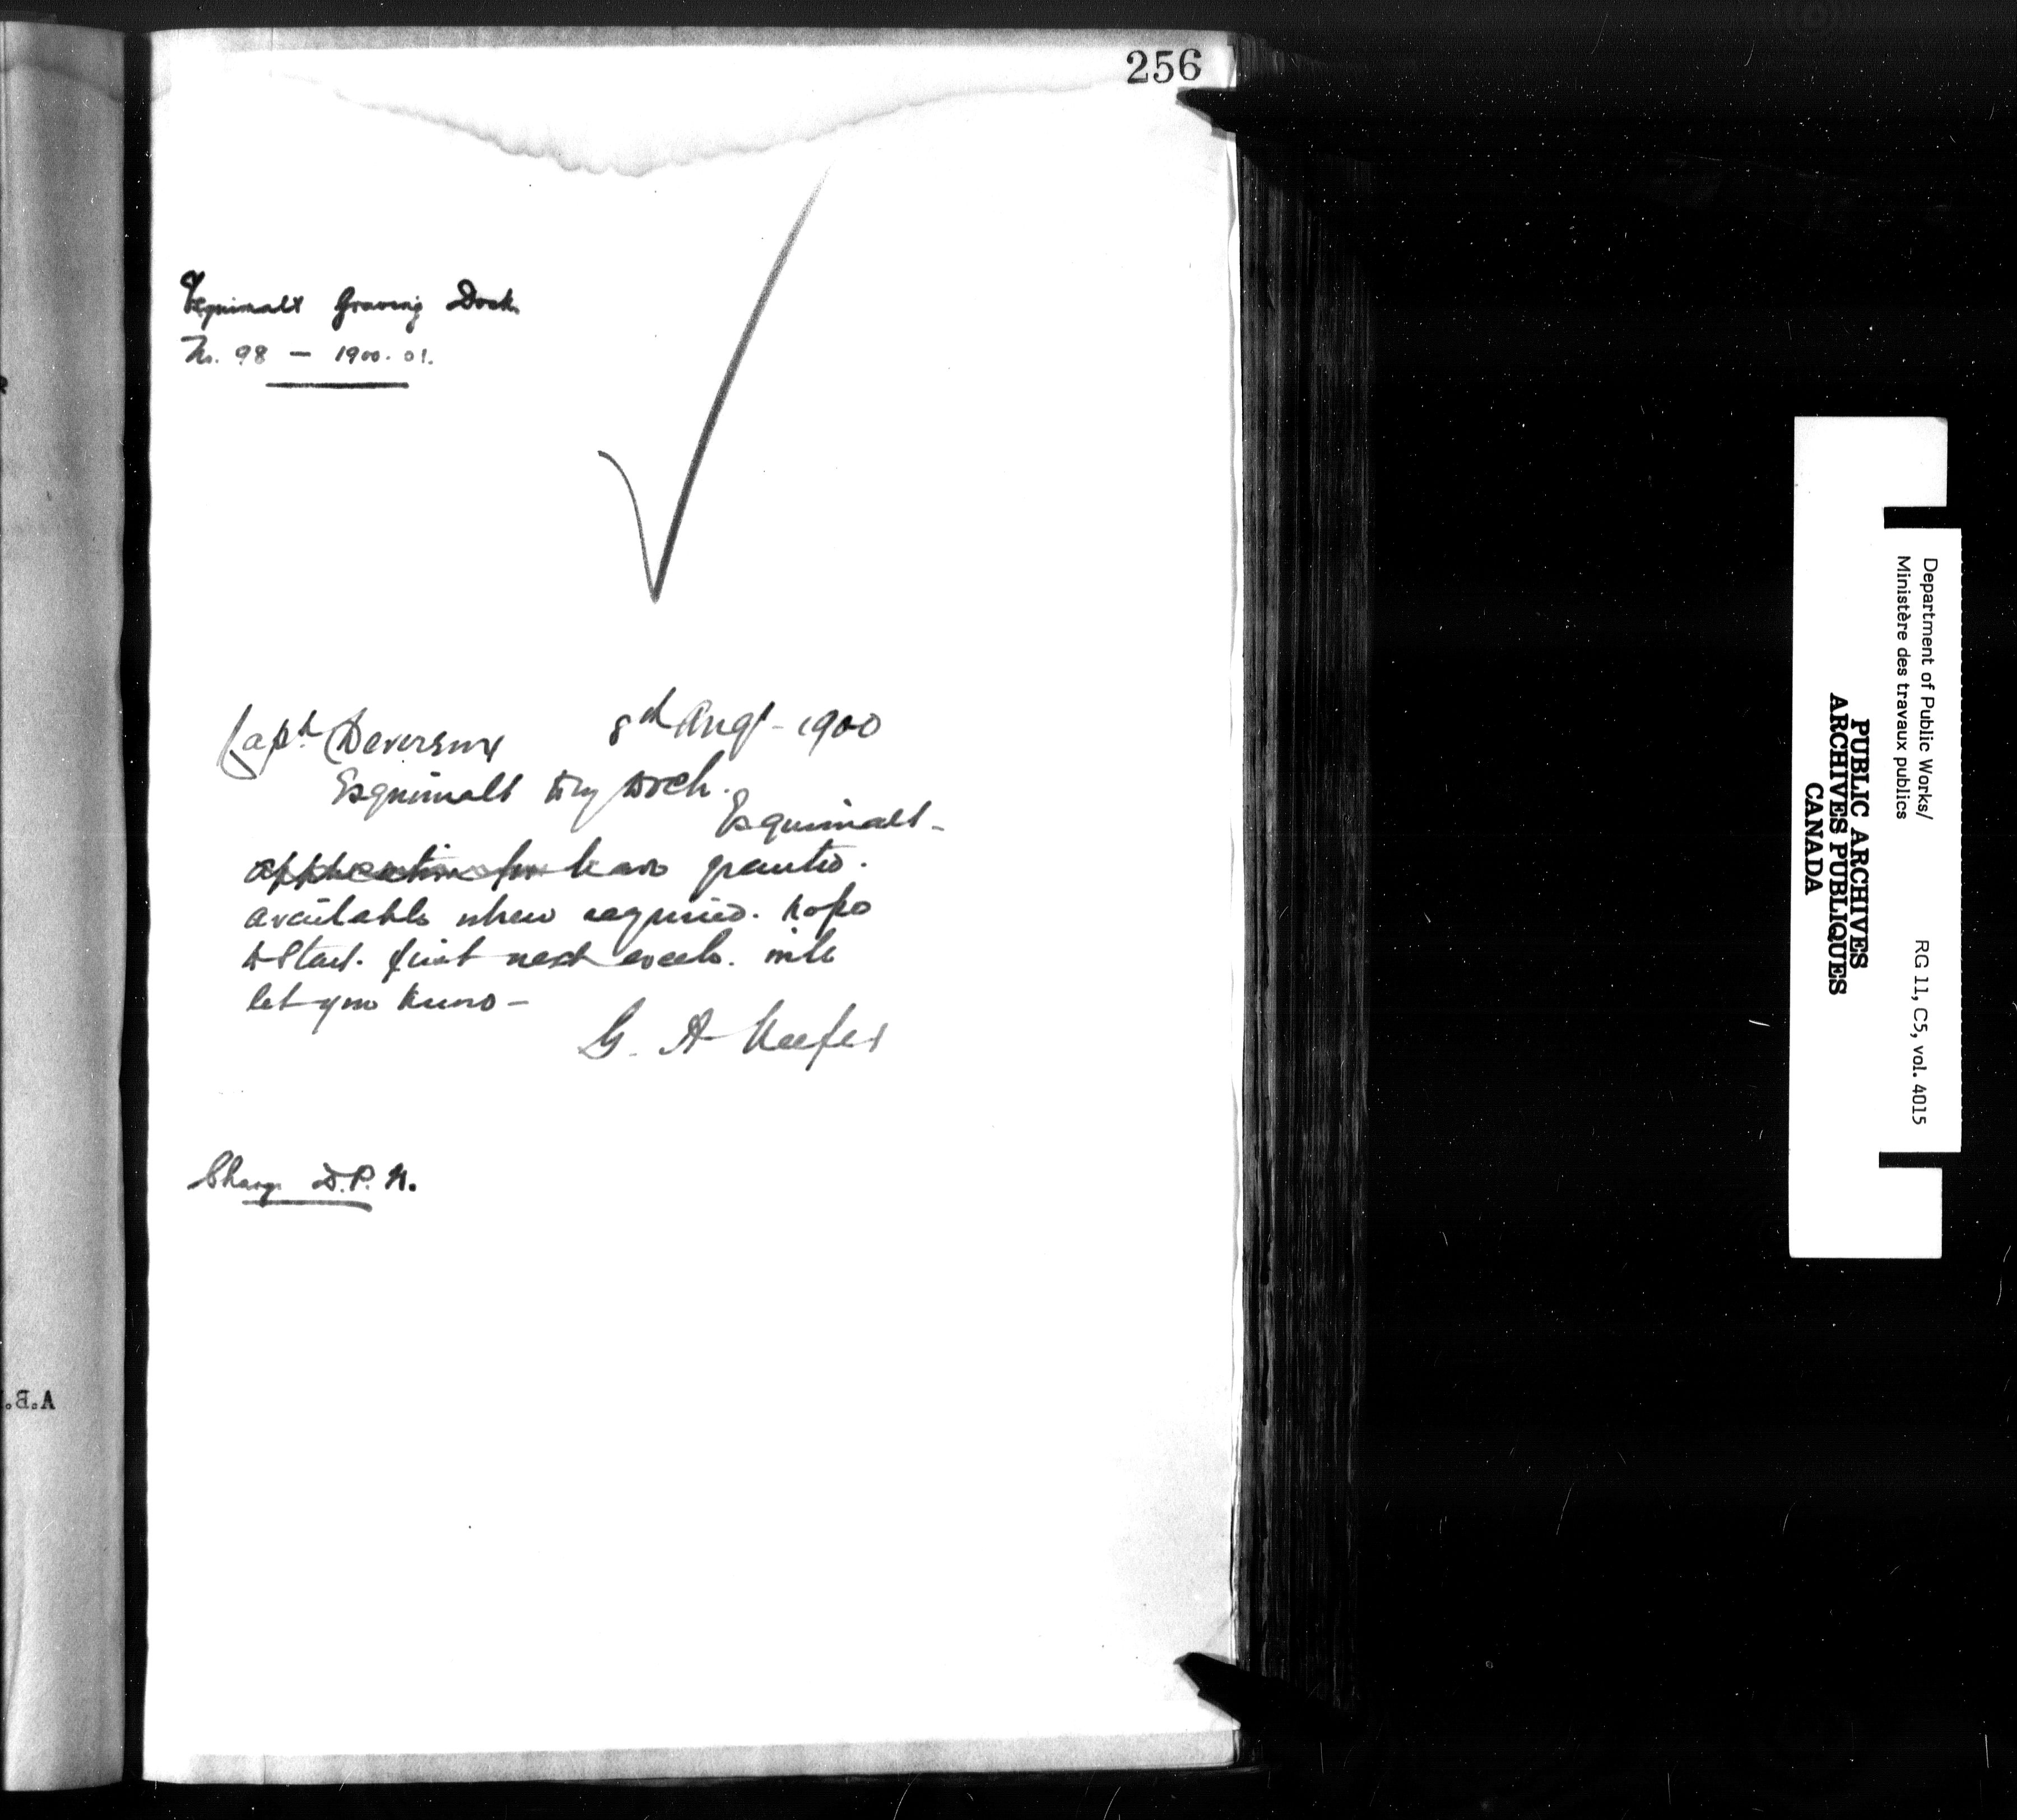 256
Esquimalt Graving Dock
No. 98 — 1900.01.
Capt Devereux 8th Augt - 1900
Esquimalt Dry Dock.
Esquimalt -
application for leave granted.
available when required. hope
to start. first next week. will
let you know -
G. A Keefer
Charge D.P.W.
A.B.
Department of Public Works/
Ministère des travaux publics
RG 11, C5, vol. 4015
PUBLIC ARCHIVES
ARCHIVES PUBLIQUES
CANADA